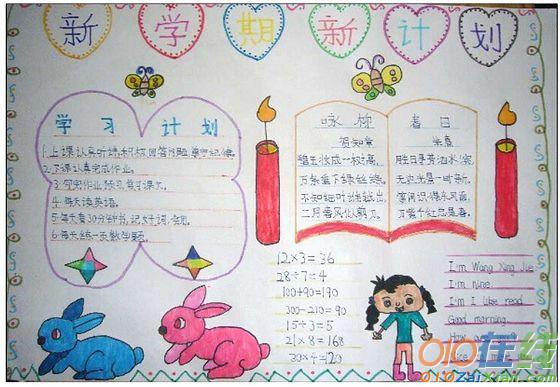 新学期新计划
学习计划
1.上课认真听讲,积极回答问题,遵守纪律。
2.下课认真完成作业。
3.写完作业预习第二天课。
4.每天读英语。
5.每天看30分钟书,记好词、
6.每天练一页数学题。
咏柳
贺知章
碧玉妆成一树高,
万条垂下绿丝绦。
不知细叶谁裁出,
二月春风似剪刀。
春日
朱熹
胜日寻芳泗水滨,
无边光景一时新。
等闲识得东风面,
万紫千红总是春。
12×3=36
28÷7=4
100+90=190
300-210=90
15÷3=5
21×8=168
30×4=120
I'm Wang Xing Jue
I'm nine.
I'm I like read
Good morning.
How
Nice
010在线